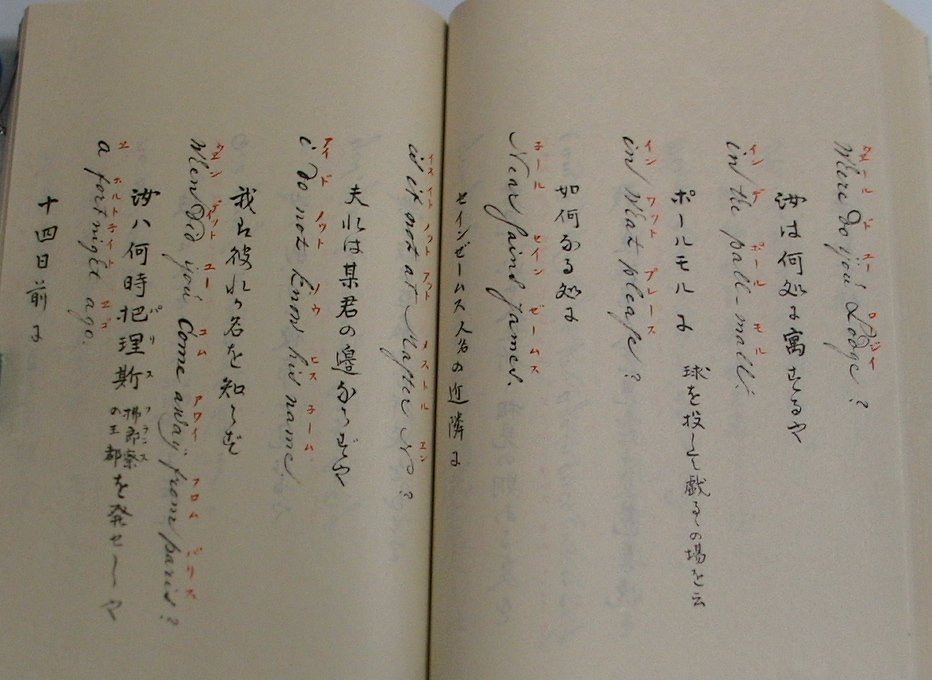 ウェール ド ユー ロジイ
Where do you Lodge?
汝は何処に寓するや
イン デ ポール モル
in the pall-mall.
ポールモル に 球を投して戯るゝの場を云
イン ワット プレース
in What please?
如何なる処に
子ール セイン ゼームス
Near Saint James.
セインゼームス人名の近隣に
イス イット ノット アット メストル エン
is it not at Master N?
夫れは某君の邊ならずや
アイ ド ノット ノウ ヒス 子ーム
i do not know his name.
我れ彼れの名を知らず
ウェン ヂット ユー コム アワイ フロム パリス
When Did you Come away from paris?
汝ハ何時把理斯 パリス 拂郎察 フランス の王都を発せしや
エ ホルトナイト エゴ
a fortnight ago.
十四日前に